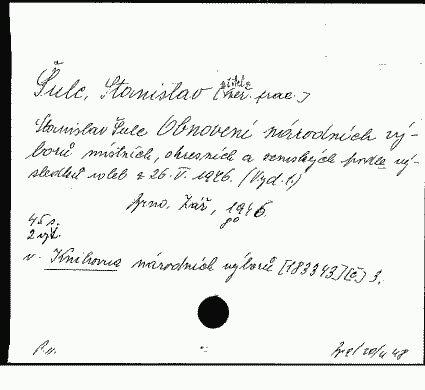 Šulc, Stanislav [ver. prac.]
Stanislav Šulc Obnovení národních vý-
borů místních, okresních a zemských podle vý-
sledků voleb z 26. V. 1946. (Vyd. 1.)
Brno, Zář, 1946.
45 s.
2 výt.
v. Knihovna národních výborů [183343] [č] 3.